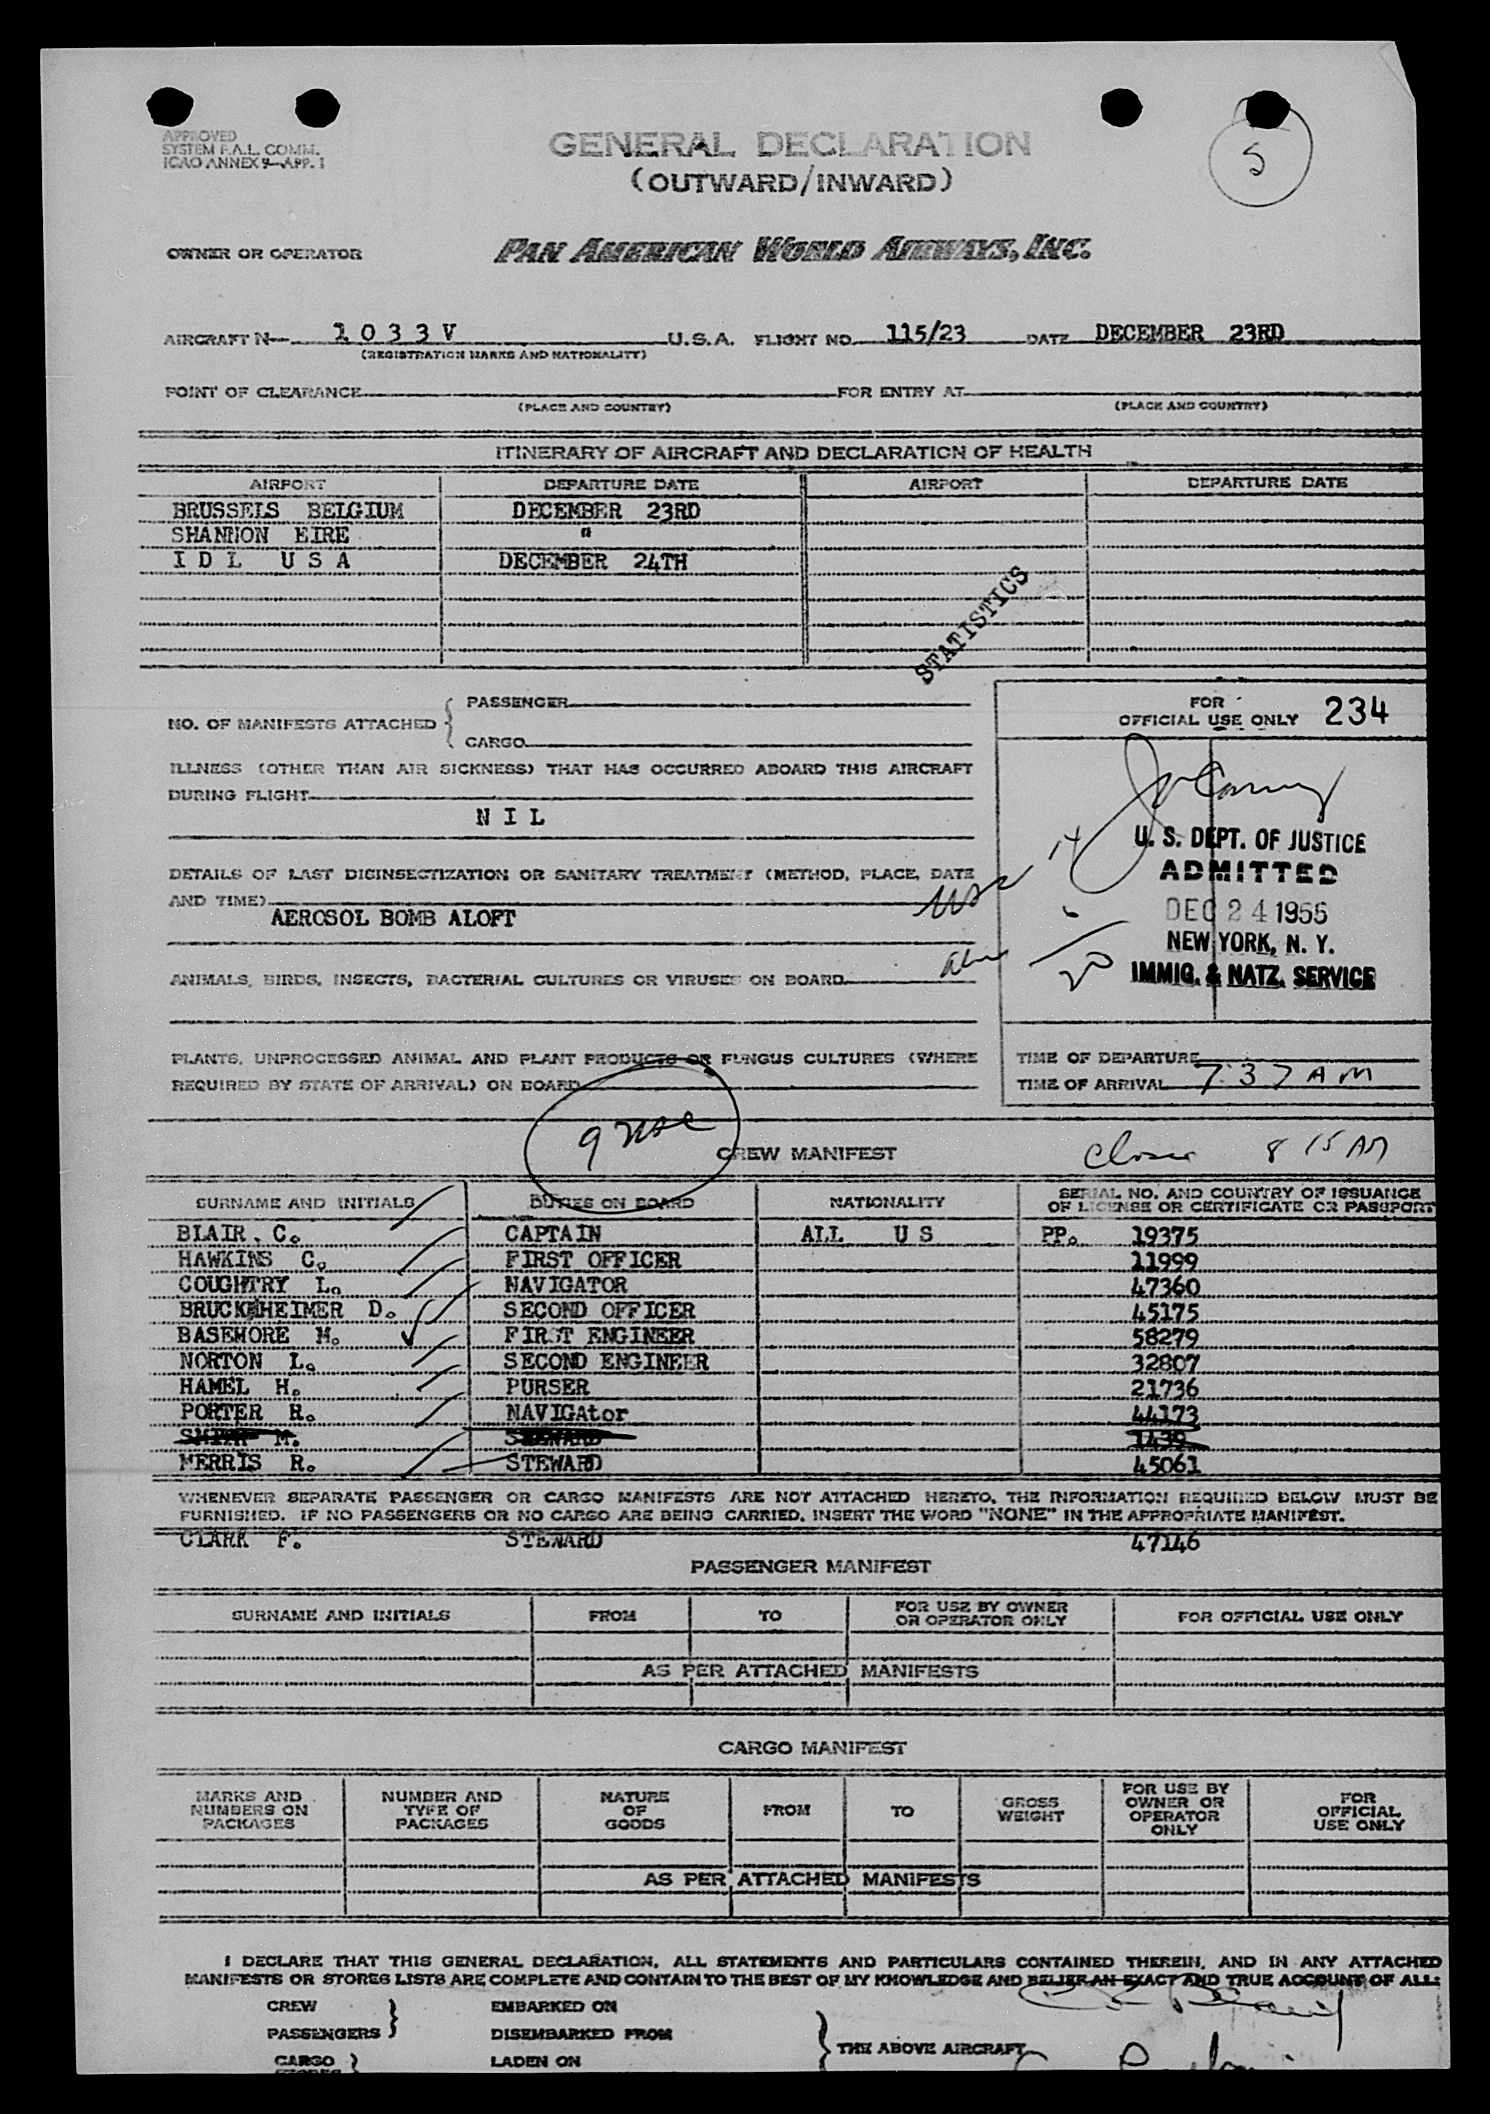 APPROVED
SYSTEM F.A.L. COMM.
ICAO ANNEX 9—APP. 1
GENERAL DECLARATION
(OUTWARD/INWARD)
5
OWNER OR OPERATOR
PAN AMERICAN WORLD AIRWAYS, INC.
AIRCRAFT N— 1 0 3 3 V U.S.A. FLIGHT NO. 115/23 DATE DECEMBER 23RD
(REGISTRATION MARKS AND NATIONALITY)
POINT OF CLEARANCE FOR ENTRY AT
(PLACE AND COUNTRY) (PLACE AND COUNTRY)
ITINERARY OF AIRCRAFT AND DECLARATION OF HEALTH
AIRPORT DEPARTURE DATE AIRPORT DEPARTURE DATE
BRUSSELS BELGIUM DECEMBER 23RD
SHANNON EIRE "
I D L U S A DECEMBER 24TH
STATISTICS
NO. OF MANIFESTS ATTACHED { PASSENGER
CARGO
FOR
OFFICIAL USE ONLY 234
ILLNESS (OTHER THAN AIR SICKNESS) THAT HAS OCCURRED ABOARD THIS AIRCRAFT
DURING FLIGHT
N I L
U. S. DEPT. OF JUSTICE
ADMITTED
DEC 24 1955
NEW YORK, N. Y.
IMMIG. & NATZ. SERVICE
DETAILS OF LAST DISINSECTIZATION OR SANITARY TREATMENT (METHOD, PLACE, DATE
AND TIME)
AEROSOL BOMB ALOFT
usc 14
ANIMALS, BIRDS, INSECTS, BACTERIAL CULTURES OR VIRUSES ON BOARD
alien 6
20
PLANTS, UNPROCESSED ANIMAL AND PLANT PRODUCTS OR FUNGUS CULTURES (WHERE
REQUIRED BY STATE OF ARRIVAL) ON BOARD
TIME OF DEPARTURE
TIME OF ARRIVAL 7:37 AM
9 usc
CREW MANIFEST
8 15 AM
SURNAME AND INITIALS DUTIES ON BOARD NATIONALITY SERIAL NO. AND COUNTRY OF ISSUANCE
OF LICENSE OR CERTIFICATE OR PASSPORT
BLAIR. C. CAPTAIN ALL U S PP. 19375
HAWKINS C. FIRST OFFICER 11999
COUGHTRY L. NAVIGATOR 47360
BRUCKHEIMER D. SECOND OFFICER 45175
BASEMORE M. FIRST ENGINEER 58279
NORTON L. SECOND ENGINEER 32807
HAMEL H. PURSER 21736
PORTER R. NAVIGAtor 44173
SMITH M. STEWARD 1439
MERRIS R. STEWARD 45061
WHENEVER SEPARATE PASSENGER OR CARGO MANIFESTS ARE NOT ATTACHED HERETO, THE INFORMATION REQUIRED BELOW MUST BE
FURNISHED. IF NO PASSENGERS OR NO CARGO ARE BEING CARRIED, INSERT THE WORD "NONE" IN THE APPROPRIATE MANIFEST.
CLARK F. STEWARD 47146
PASSENGER MANIFEST
SURNAME AND INITIALS FROM TO FOR USE BY OWNER
OR OPERATOR ONLY FOR OFFICIAL USE ONLY
AS PER ATTACHED MANIFESTS
CARGO MANIFEST
MARKS AND
NUMBERS ON
PACKAGES NUMBER AND
TYPE OF
PACKAGES NATURE
OF
GOODS FROM TO GROSS
WEIGHT FOR USE BY
OWNER OR
OPERATOR
ONLY FOR
OFFICIAL
USE ONLY
AS PER ATTACHED MANIFESTS
I DECLARE THAT THIS GENERAL DECLARATION, ALL STATEMENTS AND PARTICULARS CONTAINED THEREIN, AND IN ANY ATTACHED
MANIFESTS OR STORES LISTS ARE COMPLETE AND CONTAIN TO THE BEST OF MY KNOWLEDGE AND BELIEF AN EXACT AND TRUE ACCOUNT OF ALL:
CREW EMBARKED ON
PASSENGERS } DISEMBARKED FROM
CARGO } LADEN ON } THE ABOVE AIRCRAFT